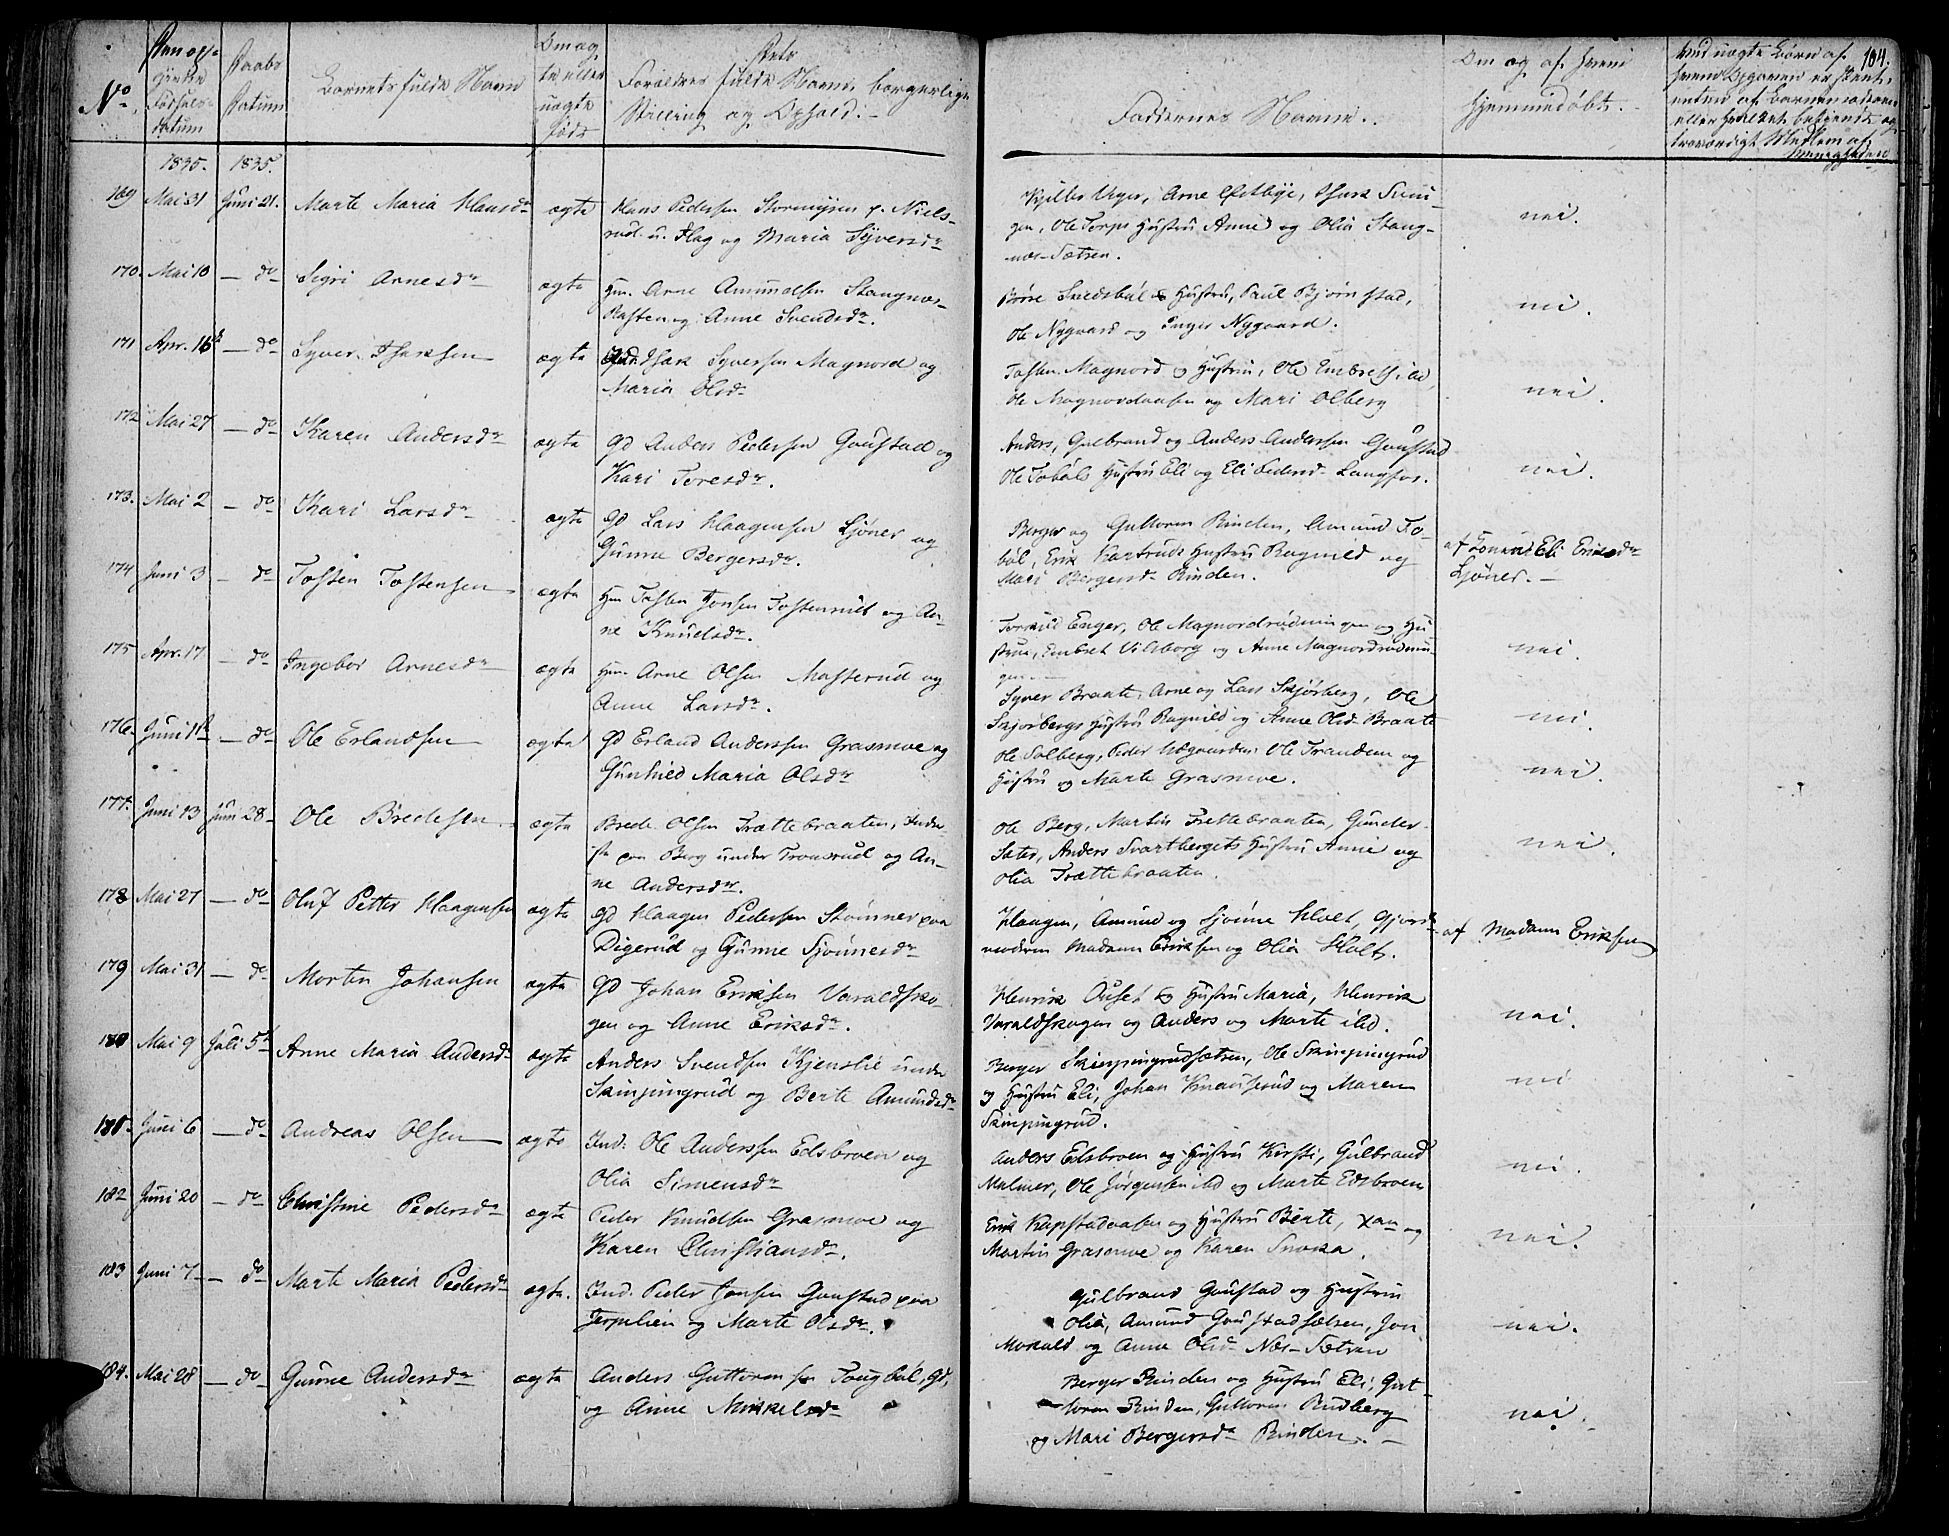 104.
No. | Daabs Datum | Barnets fulde Navn | Om ægte eller uægte født | Forældres fulde Navne, borgerlige Stilling og Ophold.
Faddernes Navne. | Om og af hvem hjemmedøbt.
1835. 1835.
169 Mai 31 Juni 21. Marte Maria Hansdr ægte Hans Pedersen Stormyren p. Niels-
rud u. Hag og Maria Syversdr
Arne Østbye,
gen, Ole Torps Hustru Anne og Olia Stang-
næs-Sætren.
nei.
170. Mai 10 — do Sigri Arnesdr ægte Hm. Arne Amundsen Stangnæs-
og Anne Svendsdr.
Hustru, Paul Bjørnstad,
Ole Nygaard og Inger Nygaard.
nei.
171 Apr. 16 — do Syver Isaksen ægte Isak Syversen Magnord og
Maria Olsdr
Tosten Magnord og Hustru, Ole
Ole Magnordaasen og Mari Olberg
nei.
172 Mai 27 — do Karen Andersdr ægte Gd Anders Pedersen Goustad og
Kari Toresdr.
Anders, Gulbrand og Anders Andersen Goustad
Ole Tobøls Hustru Eli og Eli Pedersd. Langfos.
nei.
173. Mai 2 — do Kari Larsdr ægte Gd Lars Haagensen Sjøner og
Gunne Bergersdr.
Berger og Guttorm Rinden, Amund To-
bøl, Erik Hustru Ragnild og
Mari Bergersdr Rinden.
af Eli Eriksdr
Sjøner.
174 Juni 3 — do Tosten Tostensen ægte Hm Tosten Jonsen Tostenrud og An-
ne Knudsdr.
Enger, Ole Magnordrødningen og Hu-
stru, Embret Vilsborg og Anne Magnordrødnin-
gen
nei.
175 Apr. 17 — do Ingebor Arnesdr ægte Hm. Arne Olsen Masterud og
Anne Larsdr.
Syver Braate, Arne og Lars Skjørberg, Ole
Skjørbergs Hustru Ragnild og Anne Olsd. Braate
nei
176. Juni 11 — do Ole Erlandsen ægte Gd Erland Anderssen Grasmoe og
Gunhild Maria Olsdr
Ole Solberg, Peder Ole Trandem og
Hustru og Marte Grasmoe.
nei.
177. Juni 13 Juni 28 Ole Bredesen ægte Brede Olsen Trættebraaten, Inder-
ste paa Berg under Tronsrud og An-
ne Andersdr.
Ole Berg, Martin Trettebraaten, Gunder
Sæter, Anders Svartbergets Hustru Anne og
Olia Trættebraaten.
nei.
178 Mai 27 — do Oluf Petter Haagensen ægte Gd Haagen Pedersen Stømner paa
Digerud og Gunne Sjønnesdr
Haagen, Amund og Sjønne Holt, Gjorde-
moderen Madame Eriksen og Olia Holt.
af Madam Eriksen
179 Mai 31 — do Morten Johansen ægte Gd Johan Eriksen Varaldsko-
gen og Anne Eriksdr.
Henrik Ouset og Hustru Maria, Henrik
Varaldskogen og Anders og Marte ibd.
nei.
180 Mai 9 Juli 5 Anne Maria Andersdr ægte Anders Svendsen Kjenslie under
Skinpingrud og Berte Amundsdr
Berger Skinpingrudsætren, Ole Skinpingrud
og Hustru Eli, Johan Knauserud og Maren
Skinpingrud.
nei
181. Juni 6 — do Andreas Olsen ægte Ind: Ole Anderssen Edsbroen og
Olia Simensdr
Anders Edsbroen og Hustru Kirsti, Gulbrand
Malmer, Ole Jørgensen ibd og Marte Edsbroen
nei.
182 Juni 20 — do Christine Pedersdr ægte Peder Knudsen Grasmoe og
Karen Christiansdr.
Erik Kapstadaasen og Hustru Berte, og
Martin Grasmoe og Karen
nei.
183 Juni 7 — do Marte Maria Pedersdr ægte. Ind. Peder Jonsen Goustad paa
Jerpelien og Marte Olsdr.
Gulbrand Goustad og Hustru
Olia, Amund Goustadsætren, Jon
Mokald og Anne Olsd Næs-Sætren
nei.
184. Mai 28 — do Gunne Andersdr ægte Anders Guttormsen Tougbøl, Gd,
og Anne Mikkelsdr
Berger Rinden og Hustru Eli, Gut-
torm Rinden, Guttorm Rudberg
og Mari Bergersdr Rinden.
nei.